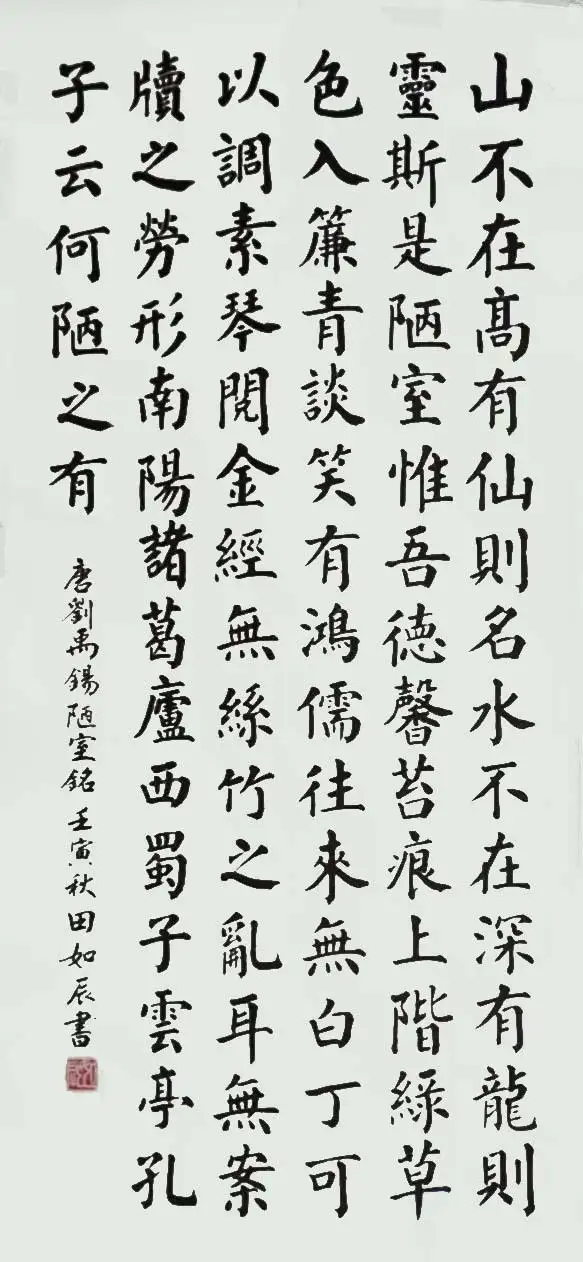 山不在高有仙則名水不在深有龍則
靈斯是陋室惟吾德馨苔痕上階綠草
色入簾青談笑有鴻儒往來無白丁可
以調素琴閱金經無絲竹之亂耳無案
牘之勞形南陽諸葛廬西蜀子雲亭孔
子云何陋之有
唐劉禹錫陋室銘壬寅秋田如辰書